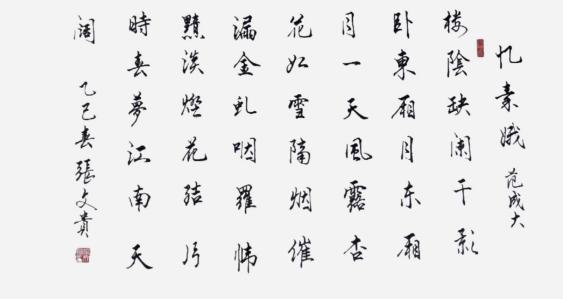 忆素娥 范成大
楼陰缺阑干影
卧東厢月东厢
月一天風露杏
花如雪隔烟催
漏金虬咽羅帏
黯淡燈花结片
時春夢江南天
阔 乙巳春張文貴